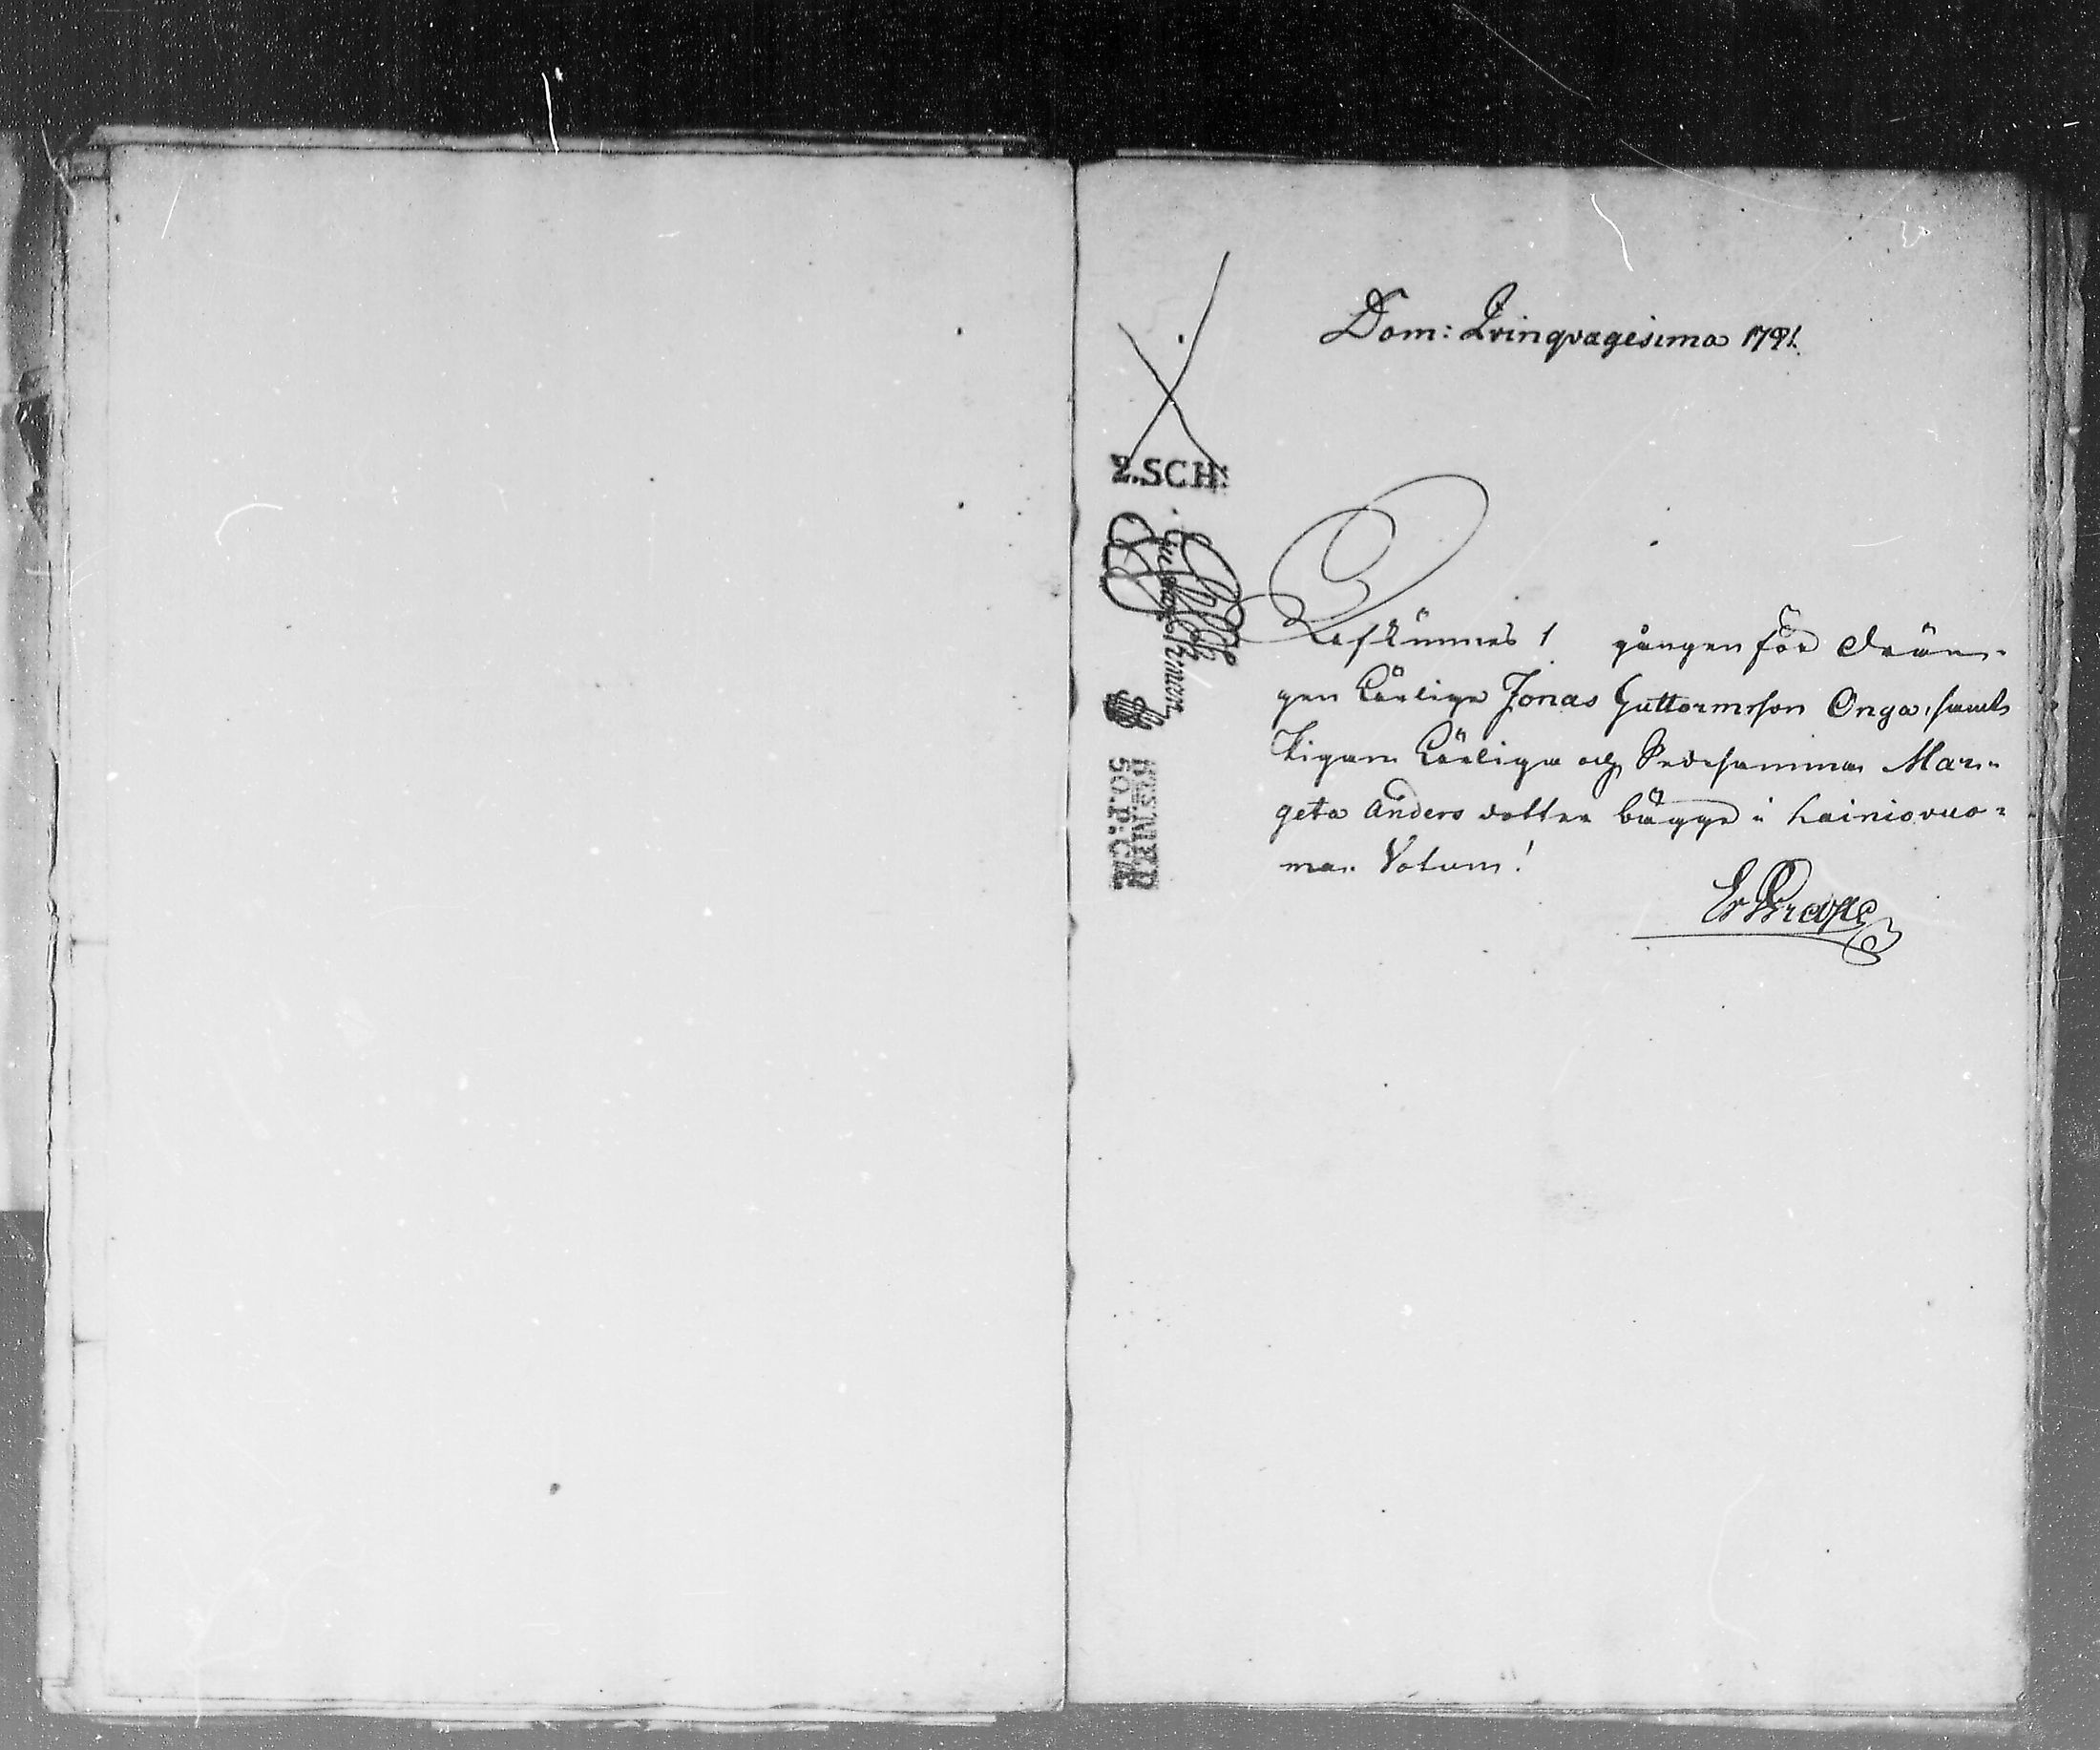 Dom: Qvinqvagesima 1791.
2.SCH:
Aflÿsnes 1 gången för Drän-
gen Ährlige Jonas Guttormsson Onga, samt
Pigan Ährliga och Sedesamma Mar-
geta Anders dotter bägge i Lainiovuo-
ma. Votum!